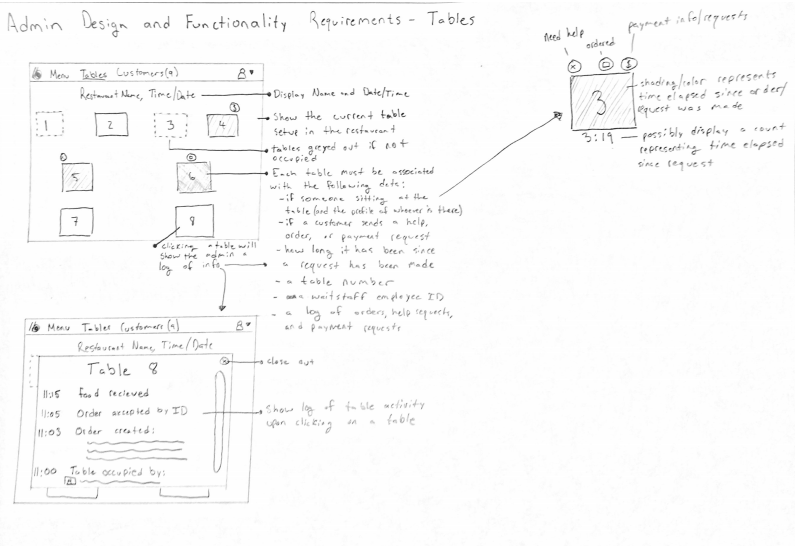 Admin Design and Functionality Requirements - Tables
Menu Tables Customers(9)
Restaurant Name, Time/Date
1 2 3 4
5 6
7 8
Display Name and Date/Time
Show the current table
setup in the restaurant
tables greyed out if not
occupied
Each table must be associated
with the following data:
- if someone sitting at the
table (and the profile of whoever is there)
- if a customer sends a help,
order, or payment request
- how long it has been since
a request has been made
- a table number
- a waitstaff employee ID
- a log of orders, help requests,
and payment requests
clicking a table will
show the admin a
log of info
Need help
ordered
payment info/requests
3
3:19
shading/color represents
time elapsed since order/
request was made
possibly display a count
representing time elapsed
since request
Menu Tables Customers(9)
Restaurant Name, Time/Date
Table 8
11:15 Food recieved
11:05 Order accepted by ID
11:03 Order created:
11:00 Table occupied by:
close out
Show log of table activity
upon clicking on a table